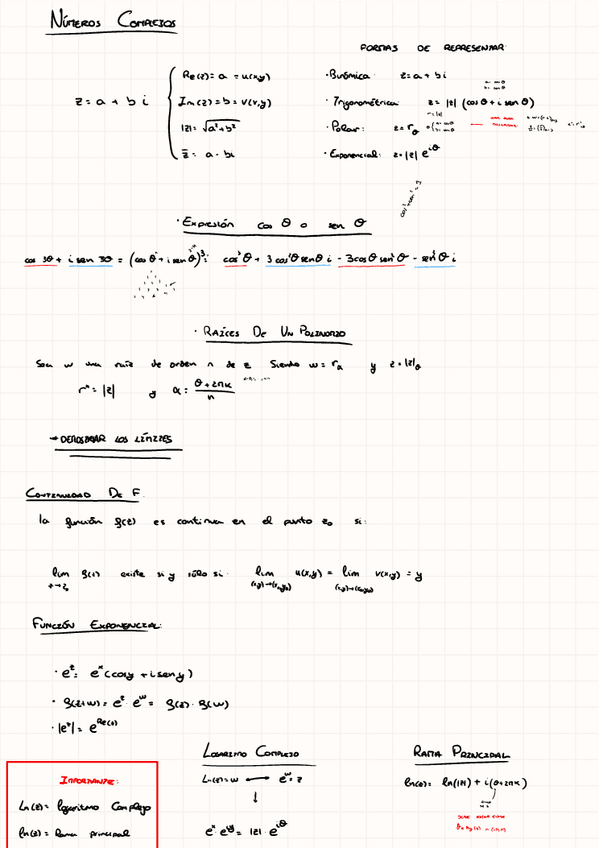 NÚMEROS COMPLEJOS
FORMAS DE REPRESENTAR
z = a + b i
Re(z) = a = u(x,y)
Im(z) = b = v(x,y)
|z| = √a²+b²
z̄ = a - bi
· Binómica: z = a + b i
· Trigonométrica: z = |z| (cos θ + i sen θ)
· Polar: z = r_θ
· Exponencial: z = |z| e^{iθ}
· Expresión cos θ o sen θ
cos 3θ + i sen 3θ = (cos θ + i sen θ)³ = cos³θ + 3 cos²θ senθ i - 3 cos θ sen²θ - sen³θ i
· RAÍCES DE UN POLINOMIO
Sea w una raíz de orden n de z siendo w = r_α y z = |z|_θ
rⁿ = |z| y α = θ + 2πk / n
→ DEMOSTRAR LOS LÍMITES
CONTINUIDAD DE F
la función f(z) es continua en el punto z₀ si:
lim f(z) existe si y sólo si: lim u(x,y) = lim v(x,y) = y
z→z₀ (x,y)→(x₀,y₀) (x,y)→(x₀,y₀)
FUNCIÓN EXPONENCIAL:
· e^z = e^x (cos y + i sen y)
· f(z+w) = e^z · e^w = f(z) · f(w)
· |e^z| = e^{Re(z)}
LOGARITMO COMPLEJO
Ln(z) = w ⟷ e^w = z
↓
e^x e^{iy} = |z| · e^{iθ}
RAMA PRINCIPAL
ln(z) = ln(|z|) + i(θ + 2πk)
IMPORTANTE:
Ln(z) = logaritmo complejo
ln(z) = Rama principal